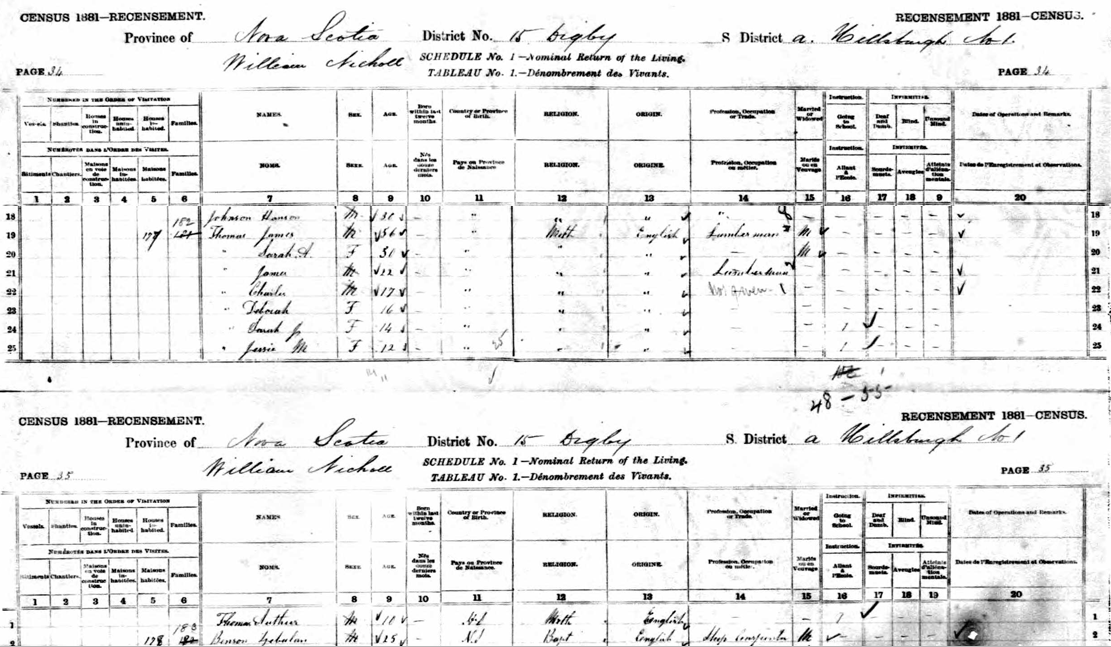 CENSUS 1881—RECENSEMENT. RECENSEMENT 1881—CENSUS.
Province of Nova Scotia District No. 15 Digby S District a. Hillsburgh No 1.
William Nicholl SCHEDULE No. 1—Nominal Return of the Living.
PAGE 34 TABLEAU No. 1.—Dénombrement des Vivants. PAGE 34
NUMBERED IN THE ORDER OF VISITATION NAMES. SEX. AGE. Born within last twelve months. Country or Province of Birth. RELIGION. ORIGIN. Profession, Occupation or Trade. Married or Widowed Instruction. INFIRMITIES. Dates of Operations and Remarks.
Vessels. Shanties. Houses in construction. Houses uninhabited. Houses inhabited. Families. Going to School. Deaf and Dumb. Blind. Unsound Mind.
NUMÉROTÉS DANS L'ORDRE DES VISITES. NOMS. SEXE. AGE. Nés dans les douze derniers mois. Pays ou Province de Naissance RELIGION. ORIGINE. Profession, Occupation ou métier. Mariés ou en Veuvage Instruction. INFIRMITÉS. Dates de l'Enregistrement et Observations.
Bâtiments Chantiers. Maisons en voie de construction. Maisons inhabitées. Maisons habitées. Familles. Allant à l'École. Sourds-muets. Aveugles Atteints d'aliénation mentale.
1 2 3 4 5 6 7 8 9 10 11 12 13 14 15 16 17 18 19 20
18 Johnson Hanson M 30 — " " " " — — — — 18
19 177 182 181 Thomas James M 56 — " Meth English Lumberman M — — — — 19
20 " Sarah A. F 50 — " " " — M — — — — 20
21 " James M 22 — " " " Lumberman — — — — — 21
22 " Charles M 17 — " " " Not given 1 — — — — — 22
23 " Deborah F 16 — " " " — — — — — — 23
24 " Sarah J F 14 — " " " — — 1 — — — 24
25 " Jessie M F 12 — " " " — — 1 — — — 25
48 — 55
CENSUS 1881—RECENSEMENT. RECENSEMENT 1881—CENSUS.
Province of Nova Scotia District No. 15 Digby S. District a Hillsburgh No 1
William Nicholl SCHEDULE No. 1—Nominal Return of the Living.
PAGE 35 TABLEAU No. 1.—Dénombrement des Vivants. PAGE 35
NUMBERED IN THE ORDER OF VISITATION NAMES SEX. AGE. Born within last twelve months. Country or Province of Birth. RELIGION. ORIGIN. Profession, Occupation or Trade. Married or Widowed Instruction. INFIRMITIES. Dates of Operations and Remarks.
Vessels. Shanties. Houses in construction. Houses uninhabited. Houses inhabited. Families. Going to School. Deaf and Dumb. Blind. Unsound Mind.
NUMÉROTÉS DANS L'ORDRE DES VISITES. NOMS. SEXE. AGE. Nés dans les douze derniers mois. Pays ou Province de Naissance. RELIGION. ORIGINE. Profession, Occupation ou métier. Mariés ou en Veuvage Instruction. INFIRMITÉS. Dates de l'Enregistrement et Observations.
Bâtiments Chantiers. Maisons en voie de construction Maisons inhabitées. Maisons habitées. Familles. Allant à l'École. Sourds-muets. Aveugles Atteints d'aliénation mentale.
1 2 3 4 5 6 7 8 9 10 11 12 13 14 15 16 17 18 19 20
1 Thomas Arthur M 10 — Meth English — — 1 — — — 1
2 178 183 182 Benson M 25 — N.S Bapt English Ship Carpenter M — — — — 2